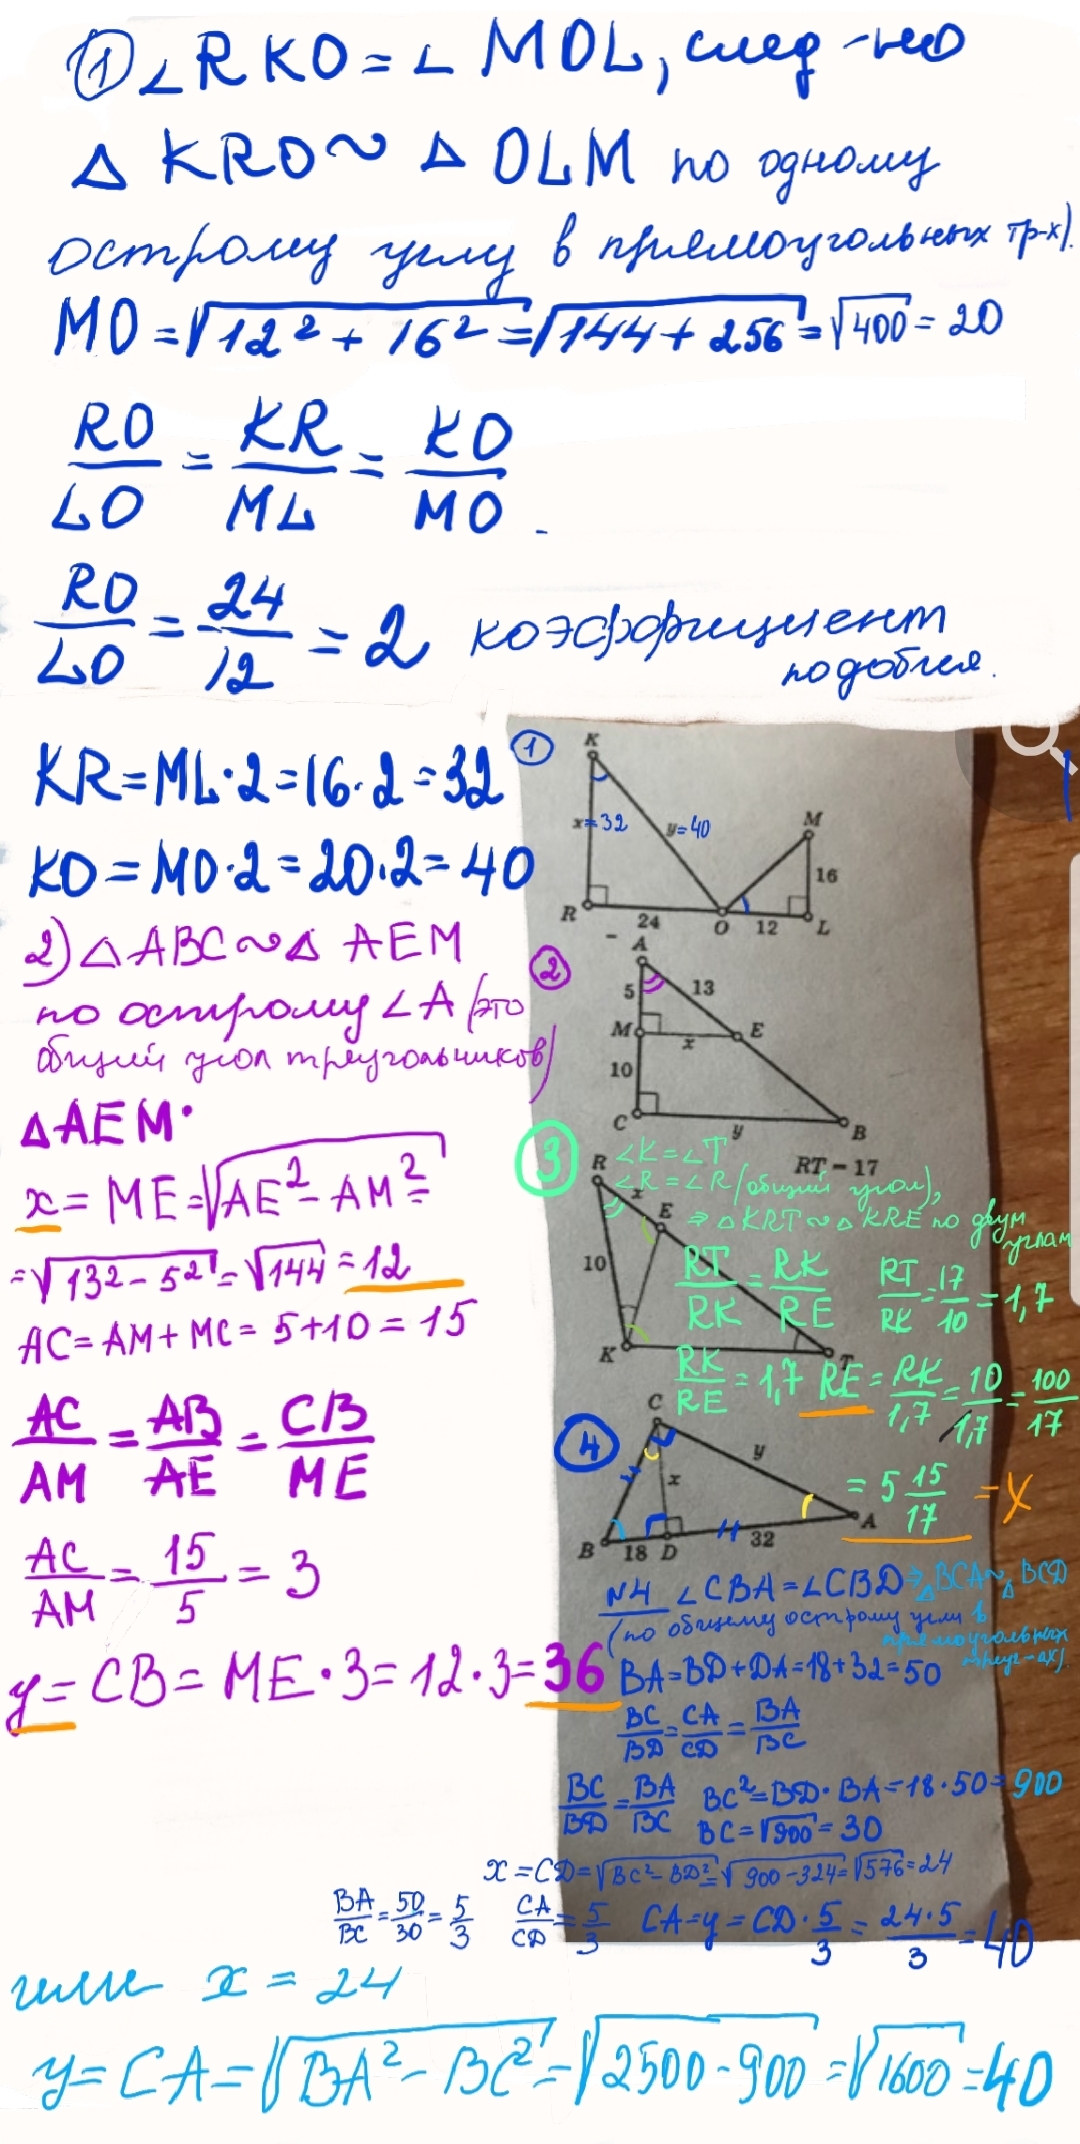 ① ∠RKO = ∠MOL, след-но
△ KRO ~ △ OLM по одному
острому углу в прямоугольных тр-х).
MO = √12² + 16² = √144 + 256 = √400 = 20
RO/LO = KR/ML = KO/MO.
RO/LO = 24/12 = 2 коэффициент
подобия.
KR = ML · 2 = 16 · 2 = 32
KO = MO · 2 = 20 · 2 = 40
①
K
x = 32
y = 40
M
16
R
24
O
12
L
2) △ABC ~ △ AEM
по острому ∠A (это
общий угол треугольников)
△AEM.
x = ME = √AE² - AM² =
= √13² - 5² = √144 = 12
AC = AM + MC = 5 + 10 = 15
AC/AM = AB/AE = CB/ME
AC/AM = 15/5 = 3
y = CB = ME · 3 = 12 · 3 = 36
②
A
5
13
M
x
E
10
C
y
B
③
RT – 17
∠K = ∠T
∠R = ∠R (общий угол),
⇒ △KRT ~ △KRE по двум
углам
R
x
E
10
K
T
RT/RK = RK/RE RT/RK = 17/10 = 1,7
RK/RE = 1,7 RE = RK/1,7 = 10/1,7 = 100/17
= 5 15/17 = X
④
C
y
x
B
18
D
32
A
N4 ∠CBA = ∠CBD ⇒ △BCA ~ △BCD
(по общему острому углу в
прямоугольных
треуг-ах)
BA = BD + DA = 18 + 32 = 50
BC/BD = CA/CD = BA/BC
BC/BD = BA/BC BC² = BD · BA = 18 · 50 = 900
BC = √900 = 30
x = CD = √BC² - BD² = √900 - 324 = √576 = 24
BA/BC = 50/30 = 5/3 CA/CD = 5/3 CA = y = CD · 5/3 = 24·5/3 = 40
или x = 24
y = CA = √BA² - BC² = √2500 - 900 = √1600 = 40